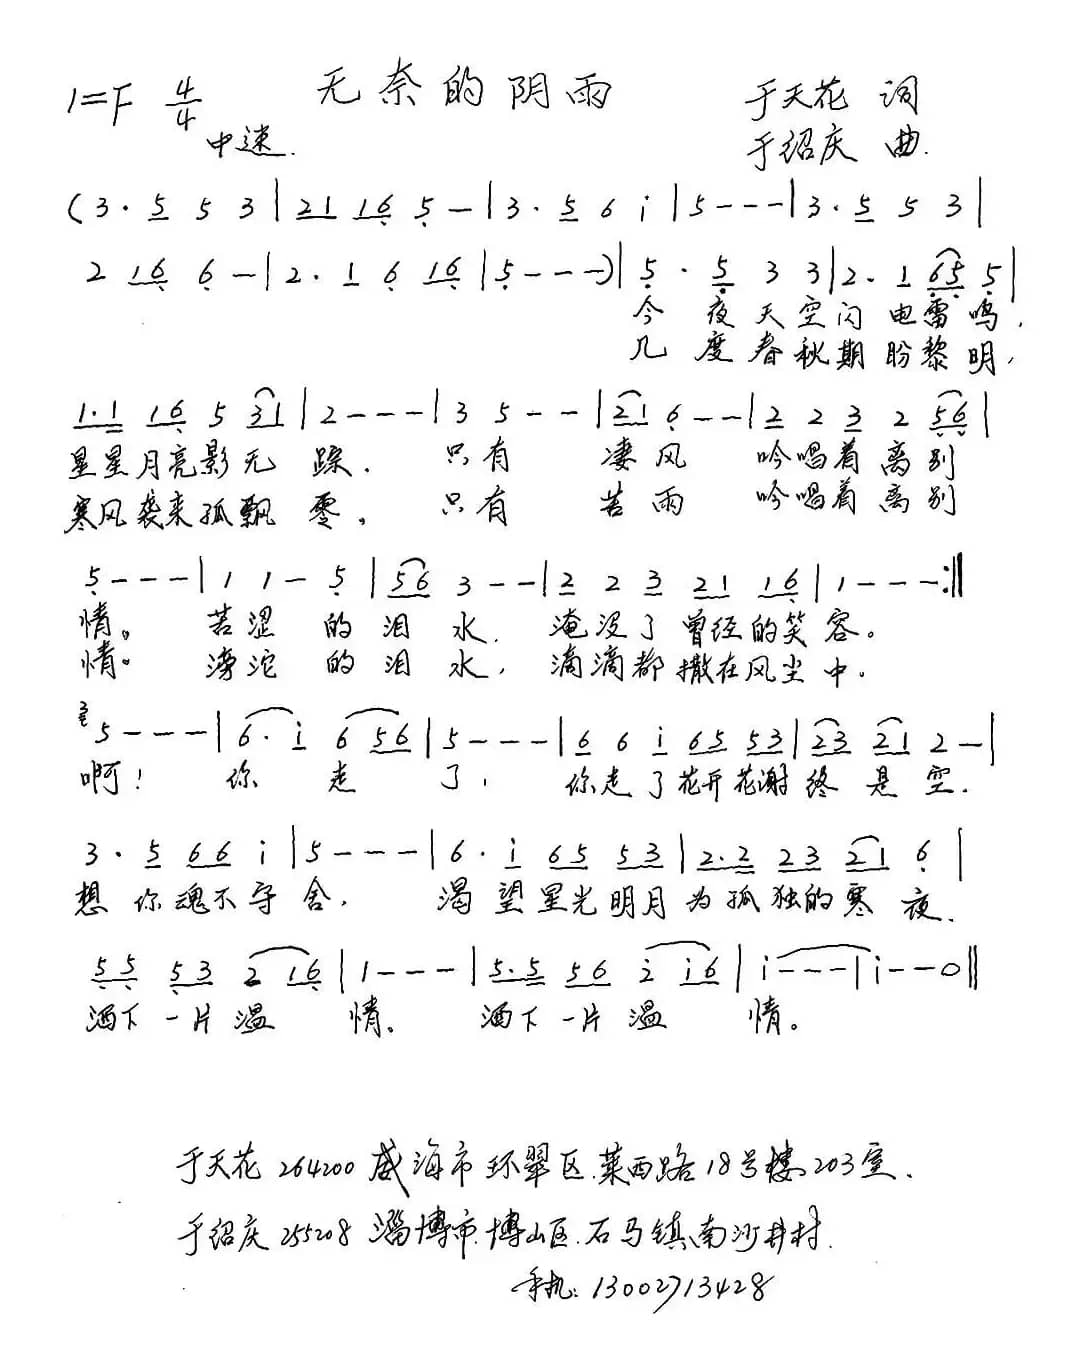 1=F 4/4 无奈的阴雨 于天花 词
中速. 于绍庆 曲.
(3·5 5 3|21 16 5 —|3·5 6 i|5 - - -|3·5 5 3|
2 16 6 —|2·1 6 16|5 - - -)|5·5 3 3|2·1 65 5|
今夜天空闪电雷鸣,
几度春秋期盼黎明,
1·1 16 5 31|2 - - -|3 5 - -|21 6 - -|2 2 3 2 56|
星星月亮影无踪. 只有 凄风 吟唱着离别
寒风袭来孤飘零, 只有 苦雨 吟唱着离别
5 - - -|1 1 — 5|56 3 - -|2 2 3 21 16|1 - - -:‖
情。 苦涩的泪水. 淹没了曾经的笑容。
情。 滂沱的泪水, 滴滴都撒在风尘中.
3 5 - - -|6·i 6 56|5 - - -|6 6 i 65 53|23 21 2 —|
啊! 你走了, 你走了花开花谢终是空.
3·5 66 i|5 - - -|6·i 65 53|2·2 23 21 6|
想你魂不守舍, 渴望星光明月为孤独的寒夜.
55 53 2 16|1 - - -|5·5 56 2 i6|i - - -|i - - 0‖
洒下一片温情. 洒下一片温情。
于天花 264200 威海市环翠区.莱西路18号楼203室.
于绍庆 255208 淄博市.博山区.石马镇南沙井村.
手机: 13002713428